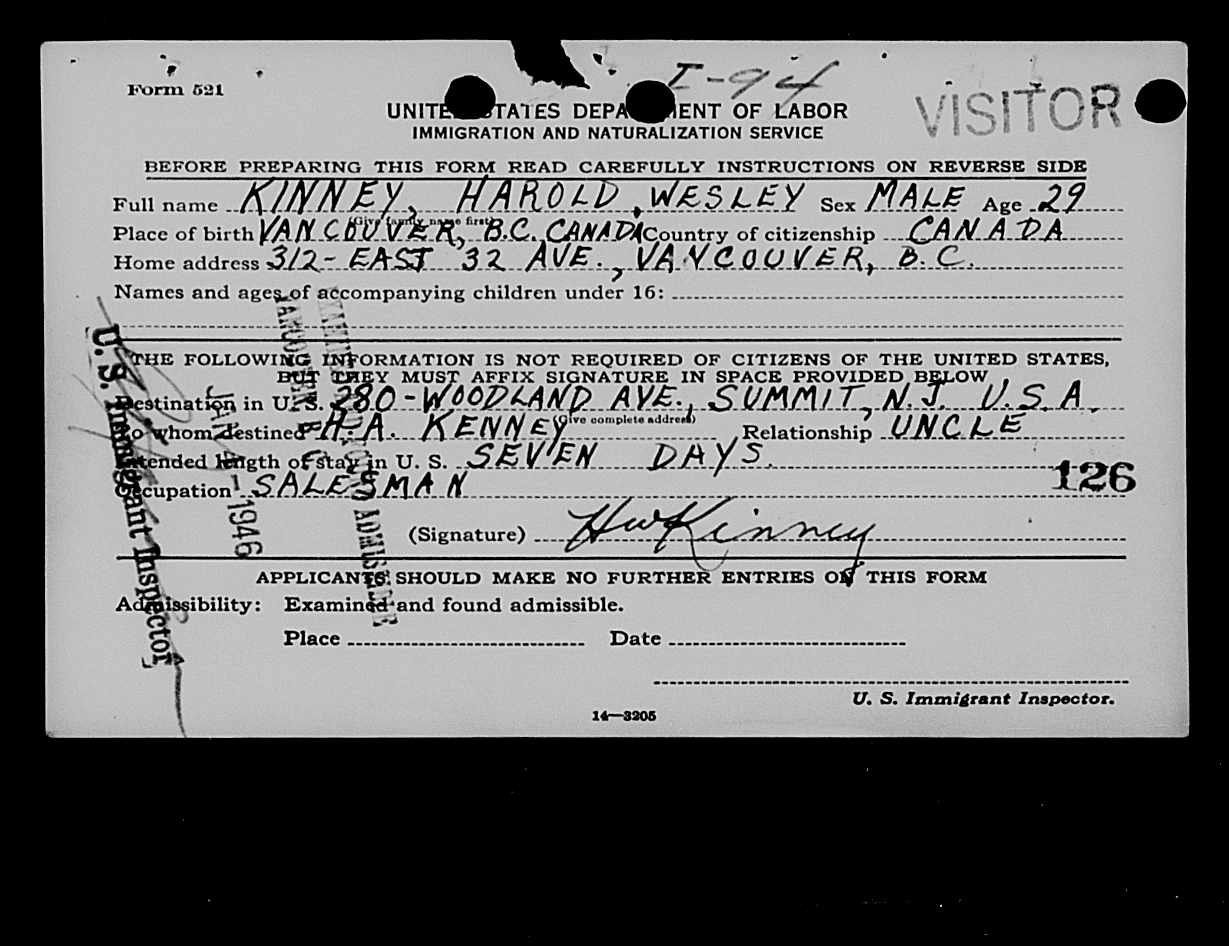 I-94
Form 521
VISITOR
UNITE STATES DEPA MENT OF LABOR
IMMIGRATION AND NATURALIZATION SERVICE
BEFORE PREPARING THIS FORM READ CAREFULLY INSTRUCTIONS ON REVERSE SIDE
Full name KINNEY, HAROLD, WESLEY Sex MALE Age 29
(Give family name first)
Place of birth VANCOUVER, B.C. CANADA Country of citizenship CANADA
Home address 312-EAST 32 AVE., VANCOUVER, B.C.
Names and ages of accompanying children under 16:
THE FOLLOWING INFORMATION IS NOT REQUIRED OF CITIZENS OF THE UNITED STATES,
BUT THEY MUST AFFIX SIGNATURE IN SPACE PROVIDED BELOW
Destination in U. S. 280-WOODLAND AVE., SUMMIT, N.J. U.S.A.
(Give complete address)
To whom destined H.A. KENNEY Relationship UNCLE
Intended length of stay in U. S. SEVEN DAYS.
126
Occupation SALESMAN
(Signature) HWKinney
APPLICANTS SHOULD MAKE NO FURTHER ENTRIES ON THIS FORM
Admissibility: Examined and found admissible.
Place Date
U. S. Immigrant Inspector.
14—3205
U. S. Immigrant Inspector
JAN 4 1946
VANCOUVER, B. C.
EXAMINED AND FOUND ADMISSIBLE